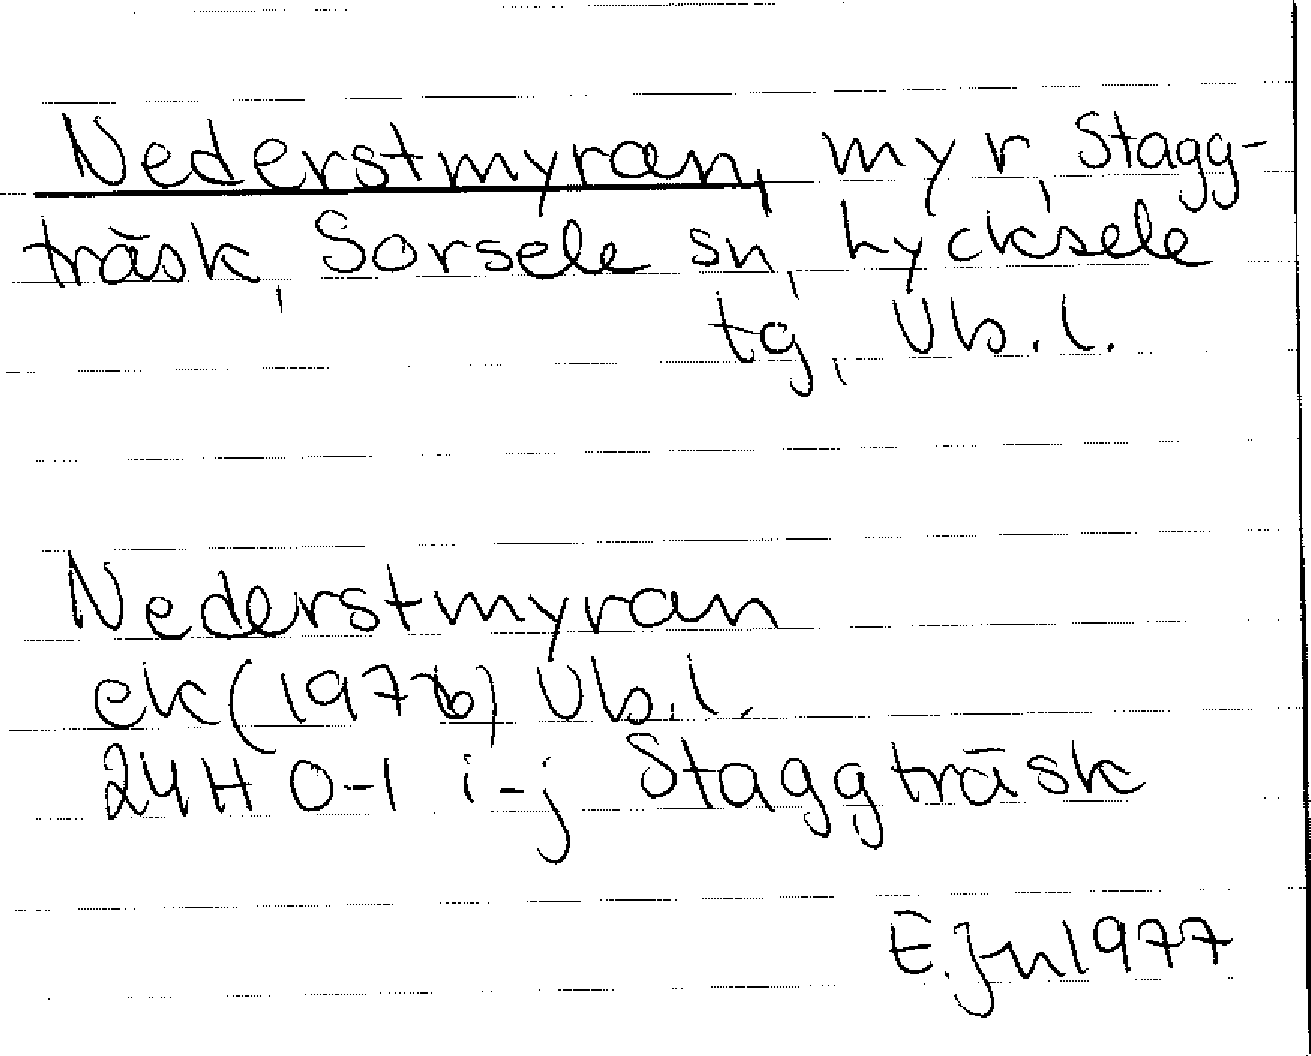 Nederstmyran, myr, Stagg-
träsk, Sorsele sn, Lycksele
tg, Vb. l.
Nederstmyran
ek (1976) Vb. l.
24H 0-1 i-j Staggträsk
E. Jn 1977